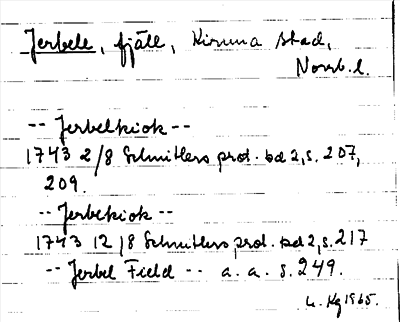 Jerbele, fjäll, Kiruna stad,
Norrb. l.
-- Jerbelkiok --
1743 2/8 Schnitlers prot. bd 2, s. 207,
209.
-- Jerbekiok --
1743 12/8 Schnitlers prot. bd 2, s. 217
-- Jerbel Field -- a. a. s. 249.
Kg 1965.